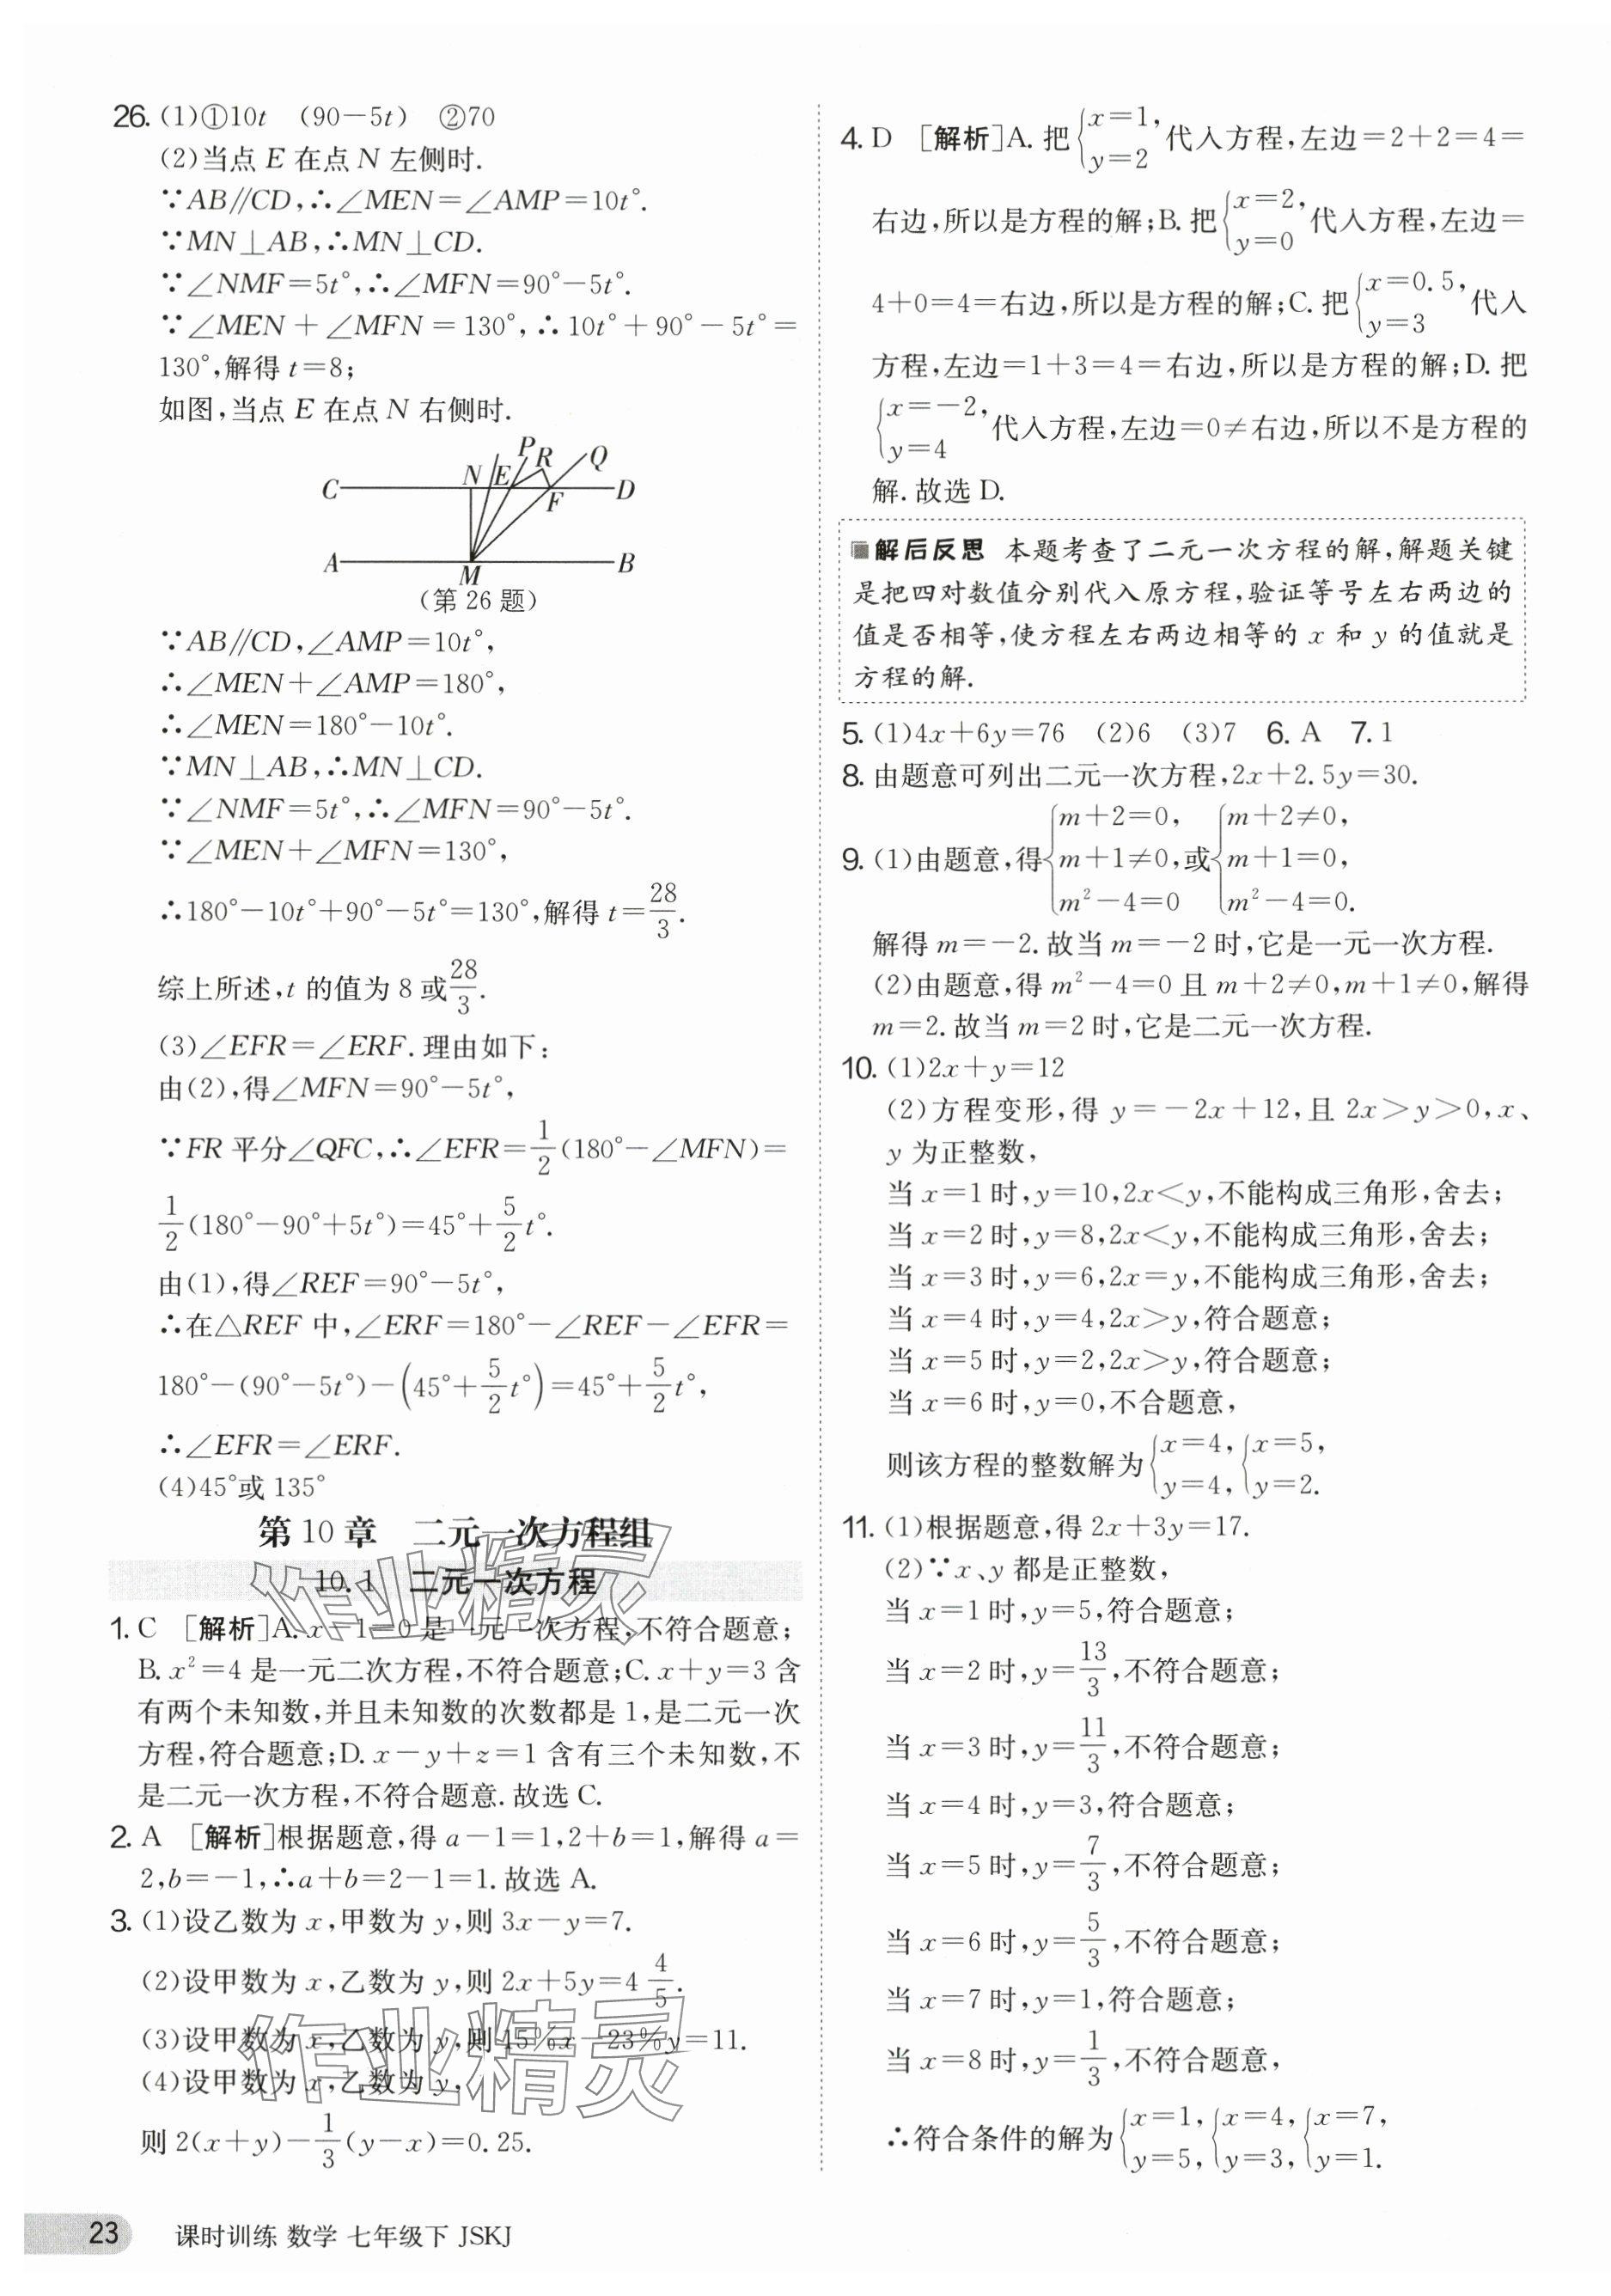 26. (1)①10t (90-5t) ②70
(2)当点 E 在点 N 左侧时.
∵AB∥CD,∴∠MEN=∠AMP=10t°.
∵MN⊥AB,∴MN⊥CD.
∵∠NMF=5t°,∴∠MFN=90°-5t°.
∵∠MEN+∠MFN=130°,∴10t°+90°-5t°=
130°,解得 t=8;
如图,当点 E 在点 N 右侧时.
P R Q
N E
C D
F
A B
M
(第 26 题)
∵AB∥CD,∠AMP=10t°,
∴∠MEN+∠AMP=180°,
∴∠MEN=180°-10t°.
∵MN⊥AB,∴MN⊥CD.
∵∠NMF=5t°,∴∠MFN=90°-5t°.
∵∠MEN+∠MFN=130°,
∴180°-10t°+90°-5t°=130°,解得 t=28/3.
综上所述,t 的值为 8 或28/3.
(3)∠EFR=∠ERF.理由如下:
由(2),得∠MFN=90°-5t°,
∵FR 平分∠QFC,∴∠EFR=1/2(180°-∠MFN)=
1/2(180°-90°+5t°)=45°+5/2t°.
由(1),得∠REF=90°-5t°,
∴在△REF 中,∠ERF=180°-∠REF-∠EFR=
180°-(90°-5t°)-(45°+5/2t°)=45°+5/2t°,
∴∠EFR=∠ERF.
(4)45°或 135°
第 10 章 二元一次方程组
10.1 二元一次方程
1. C [解析]A. x-1=0 是一元一次方程,不符合题意;
B. x²=4 是一元二次方程,不符合题意;C. x+y=3 含
有两个未知数,并且未知数的次数都是 1,是二元一次
方程,符合题意;D. x-y+z=1 含有三个未知数,不
是二元一次方程,不符合题意.故选 C.
2. A [解析]根据题意,得 a-1=1,2+b=1,解得 a=
2,b=-1,∴a+b=2-1=1.故选 A.
3. (1)设乙数为 x,甲数为 y,则 3x-y=7.
(2)设甲数为 x,乙数为 y,则 2x+5y=4 4/5.
(3)设甲数为 x,乙数为 y,则 15%x-23%y=11.
(4)设甲数为 x,乙数为 y,
则 2(x+y)-1/3(y-x)=0.25.
4. D [解析]A. 把{x=1, y=2代入方程,左边=2+2=4=
右边,所以是方程的解;B. 把{x=2, y=0代入方程,左边=
4+0=4=右边,所以是方程的解;C. 把{x=0.5, y=3代入
方程,左边=1+3=4=右边,所以是方程的解;D. 把
{x=-2, y=4代入方程,左边=0≠右边,所以不是方程的
解.故选 D.
解后反思 本题考查了二元一次方程的解,解题关键
是把四对数值分别代入原方程,验证等号左右两边的
值是否相等,使方程左右两边相等的 x 和 y 的值就是
方程的解.
5. (1)4x+6y=76 (2)6 (3)7 6. A 7. 1
8. 由题意可列出二元一次方程,2x+2.5y=30.
9. (1)由题意,得{m+2=0, m+1≠0, m²-4=0或{m+2≠0, m+1=0, m²-4=0.
解得 m=-2.故当 m=-2 时,它是一元一次方程.
(2)由题意,得 m²-4=0 且 m+2≠0,m+1≠0,解得
m=2.故当 m=2 时,它是二元一次方程.
10. (1)2x+y=12
(2)方程变形,得 y=-2x+12,且 2x>y>0,x、
y 为正整数,
当 x=1 时,y=10,2x<y,不能构成三角形,舍去;
当 x=2 时,y=8,2x<y,不能构成三角形,舍去;
当 x=3 时,y=6,2x=y,不能构成三角形,舍去;
当 x=4 时,y=4,2x>y,符合题意;
当 x=5 时,y=2,2x>y,符合题意;
当 x=6 时,y=0,不合题意,
则该方程的整数解为{x=4, y=4,{x=5, y=2.
11. (1)根据题意,得 2x+3y=17.
(2)∵x、y 都是正整数,
当 x=1 时,y=5,符合题意;
当 x=2 时,y=13/3,不符合题意;
当 x=3 时,y=11/3,不符合题意;
当 x=4 时,y=3,符合题意;
当 x=5 时,y=7/3,不符合题意;
当 x=6 时,y=5/3,不符合题意;
当 x=7 时,y=1,符合题意;
当 x=8 时,y=1/3,不符合题意,
∴符合条件的解为{x=1, y=5,{x=4, y=3,{x=7, y=1.
作业精灵
作业精灵
23 课时训练 数学 七年级下 JSKJ